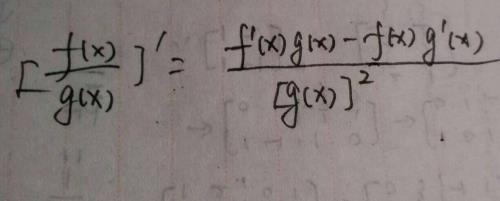 [f(x)/g(x)]' = (f'(x)g(x) - f(x)g'(x))/[g(x)]²